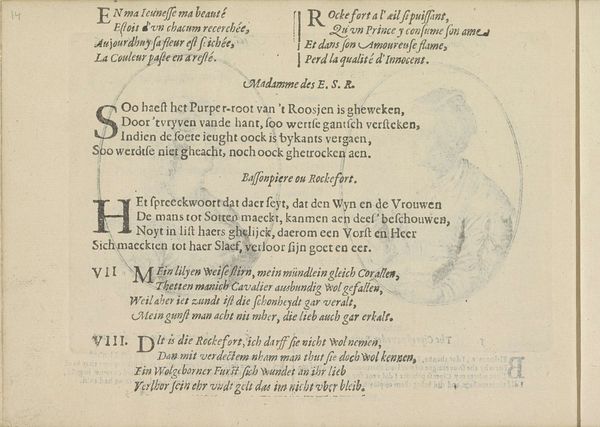 14
EN ma Ieunesse ma beauté
Estois d'vn chacum recerchée,
Aujourdhuy sa fleur est seichée,
La Couleur paste en a resté.
ROckefort a l'æil si puissant,
Qu'vn Prince y consume son ame
Et dans son Amoureuse flame,
Perd la qualité d'Innocent.
Madamme des E. S. R.
SOo haest het Purper-root van 't Roosjen is gheweken,
Door 'tvryven vande hant, soo wertse gantsch versteken,
Indien de soete ieught oock is bykants vergaen,
Soo werdtse niet gheacht, noch oock ghetrocken aen.
Bassonpiere ou Rockefort.
HEt spreeckwoort dat daer seyt, dat den Wyn en de Vrouwen
De mans tot Sotten maeckt, kanmen aen dees' beschouwen,
Noyt in list haers ghelijck, daerom een Vorst en Heer
Sich maeckten tot haer Slaef, verloor sijn goet en eer.
VII MEin lilyen Weise stirn, mein mündlein gleich Corallen,
Thetten manich Cavalier ausbundig wol gefallen,
Weil aber iet zundt ist die schonheydt gar veralt,
Mein gunst man acht nit mher, die lieb auch gar erkalt.
VIII. DIt is die Rockefort, ich darff sie nicht wol nemen,
Dan mit verdectem nham man thut sie doch wol kennen,
Ein Wolgeborner Furst sich wundet an ihr lieb
Verlhor sein ehr vndt gelt das im nicht vber bleib.